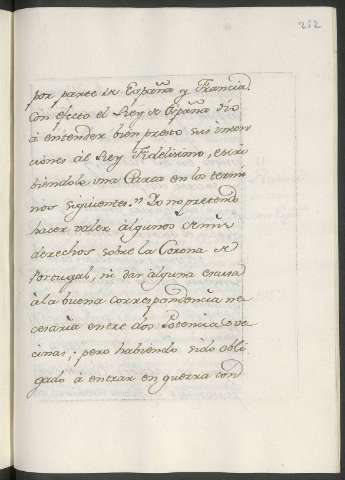 212
por parte de España y Francia.
Con efecto el Rey de España dió
á entender bien presto sus inten
ciones al Rey Fidelisimo, escri
biendole una Carta en los termi
nos siguientes. " Yo no pretendo
hacer valer algunos de mis
derechos sobre la Corona de
Portugal, ni dar alguna
à la buena correspondencia ne
cesaria entre dos Potencias ve
cinas; pero habiendo sido obli
gado à entrar en guerra con